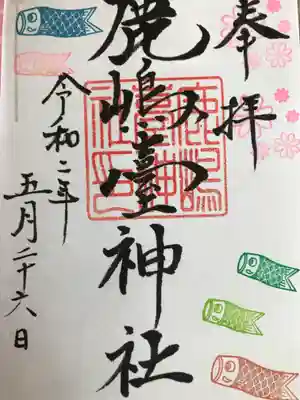 奉拝
鹿嶋臺神社
令和二年
五月二十六日